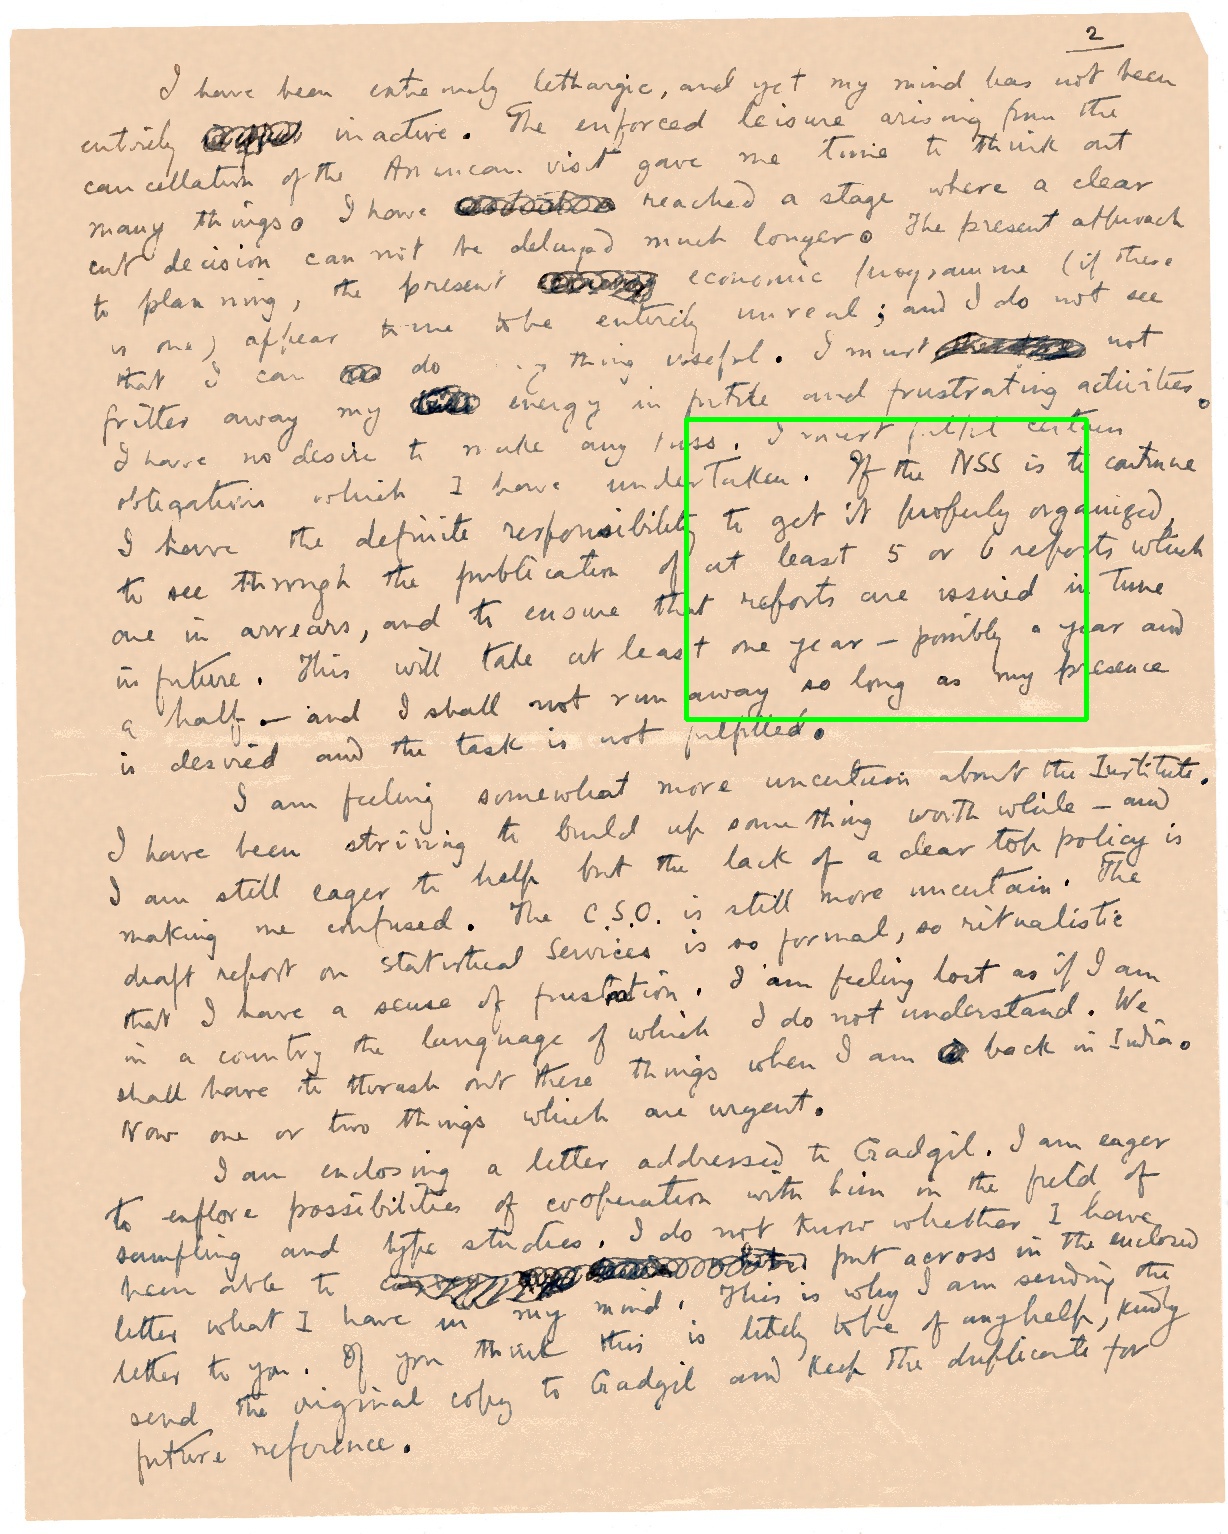 2
I have been extremely lethargic, and yet my mind has not been
entirely inactive. The enforced leisure arising from the
cancellation of the American visit gave me time to think out
many things. I have reached a stage where a clear
cut decision can not be delayed much longer. The present approach
to planning, the present economic programme (if there
is one) appear to me to be entirely unreal; and I do not see
that I can do thing useful. I must not
fritter away my energy in futile and frustrating activities.
I have no desire to make any fuss. I must fulfil certain
obligations which I have undertaken. If the NSS is to continue
I have the definite responsibility to get it properly organized,
to see through the publication of at least 5 or 6 reports which
are in arrears, and to ensure that reports are issued in time
in future. This will take at least one year — possibly a year and
a half — and I shall not run away so long as my presence
is desired and the task is not fulfilled.
I am feeling somewhat more uncertain about the Institute.
I have been striving to build up something worth while — and
I am still eager to help but the lack of a clear top policy is
making me confused. The C.S.O. is still more uncertain. The
draft report on Statistical Services is so formal, so ritualistic
that I have a sense of frustration. I am feeling lost as if I am
in a country the language of which I do not understand. We
shall have to thrash out these things when I am back in India.
Now one or two things which are urgent.
I am enclosing a letter addressed to Gadgil. I am eager
to explore possibilities of cooperation with him in the field of
sampling and type studies. I do not know whether I have
been able to put across in the enclosed
letter what I have in my mind. This is why I am sending the
letter to you. If you think this is likely to be of any help, kindly
send the original copy to Gadgil and keep the duplicate for
future reference.